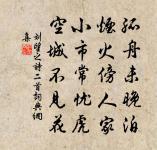 孤舟来晚泊
煙火傍人家
小市常忧虎
空城不見花
刘望之诗二首詞典網
集